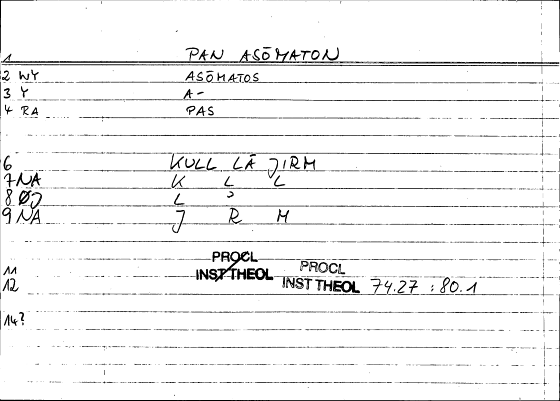 1 PAN ASŌMATON
2 WY ASŌMATOS
3 Y A-
4 RA PAS
6 KULL LĀ JIRM
7 NA K L L
8 ØJ L ʾ
9 NA J R M
PROCL
11 INST THEOL PROCL
12 INST THEOL 74.27 : 80.1
14?